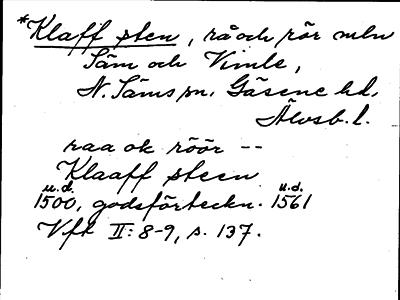 *Klaff sten, rå och rör mln
Säm och Vimle,
N. Säms sn. Gäsene hd,
Älvsb. l.
raa ok röör --
Klaaff steen
u.d. u.d.
1500, godsförteckn. 1561
Vft II: 8-9, s. 137.